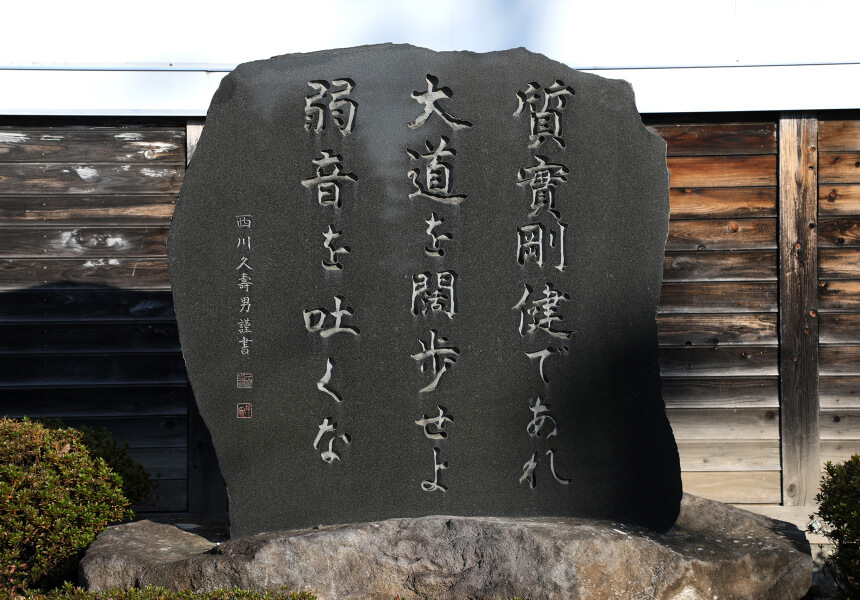 質實剛健であれ
大道を闊歩せよ
弱音を吐くな
西川久壽男謹書